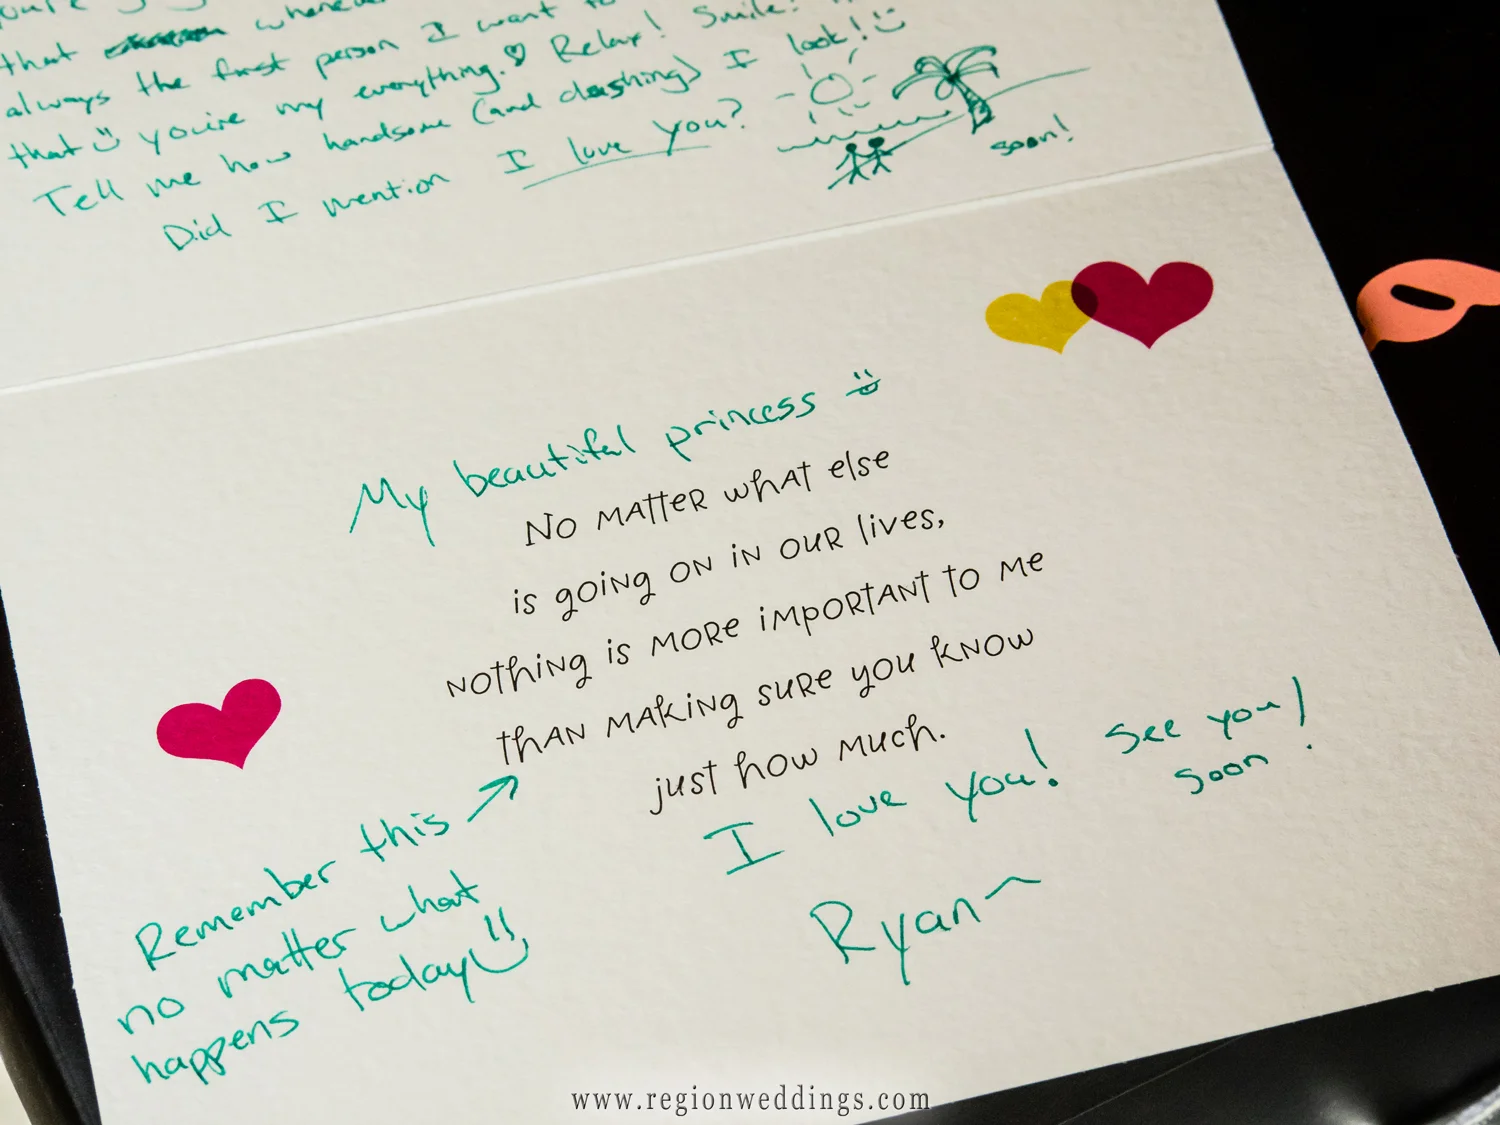 that whenever
always the first person I want to
that you're my everything. Relax! Smile!
Tell me how handsome (and dashing) I look!
Did I mention I love you?
soon!
My beautiful princess
No matter what else
is going on in our lives,
nothing is more important to me
than making sure you know
just how much.
I love you! See you
soon!
Remember this
no matter what
happens today
Ryan
www.regionweddings.com